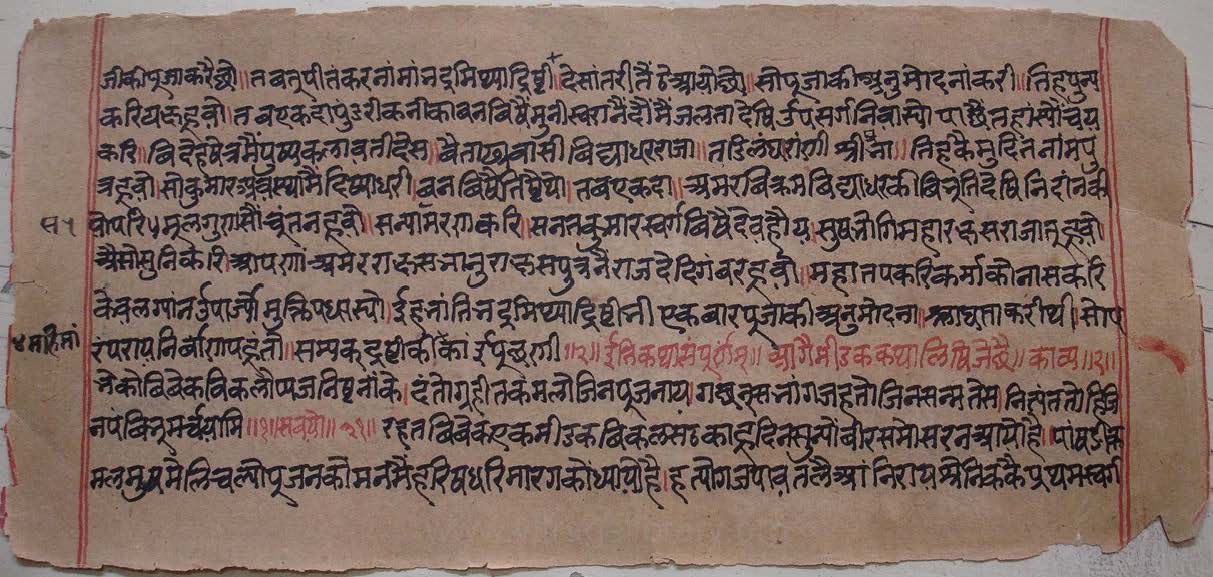 जीकीपूजाकरैछौ॥ तबतूपीतंकरनांमांनदुमिथ्याद्रिष्टी॥ देसांतरीतैंठेआयोछो॥ सोपूजाकीअनुमोदनांकरी॥ तिहपुन्य
करियक्षहूवो॥ तबएकदापुंडरीकनीकाबनबिषैंमुनीस्वरानैंदौंमैंजलतादेषिउपसर्गनिवास्यो
करि॥ बिदेहषेत्रमैंपुष्पकलावतीदेस॥ वैताढ्यवासीविद्याधरराजा॥ तडिलंघराणी श्रीप्रभा॥ तिहकैमुदितनांमपु
त्रहूवो॥ सोकुमारअवस्थामैदिष्याधरी॥ बनबिषैतिष्ठेथो॥ तबएकदा॥ अमरबिक्रमविद्याधरकीबिभूतिदेषिनिदांनकी
मूलगुणसौंचूंतनहूवो॥ सन्यासमरणकरि॥ सनतकुमारस्वर्गबिषैदेवहोय॥ महाराक्षसराजातूहूवो
अैसोसुनिकरि॥ आपरणां अमरराक्षसभानुराक्षसपुत्रनैराजदेदिगंबरहूवो॥ महातपकरिकर्माकोनासकरि
केवलग्यांनउपार्ज्यो मुक्तिपधास्यो॥ ईहनांतिनदुमिथ्याद्रिष्टीनी एकबारपूजाकीअनुमोदना॥ श्लाघताकरीथी॥ सोप
रंपरायनिर्बाणपहूंतो॥ सम्यकदृष्टीकीकांईपूछणी॥२॥ ईतिकथासंपूर्णम्॥ आगैमीडककथालिषिजेछै॥ काव्य॥२॥
भेकोबिबेकविकलोप्यजनिष्टनांके॥ दंतोगृहीतकमलोजिनपूजनाय॥ गच्छन्सनांगजहतोजिनसन्मतेस॥ नित्यंततोहिजि
नपंबिभुमर्चयामि॥१॥सवयो॥३१॥ रहतबिबेकएकमीडकबिकलसठकाहूदिनसुन्योबीरसमोसरनआयोहै॥
मलमुषमैलिचल्योपूजनकौमनमैंहरिषधरिमारगकोध्यायोहै॥ हत्योगजपावतलै श्रेनिककैप्रथमस्वर्ग